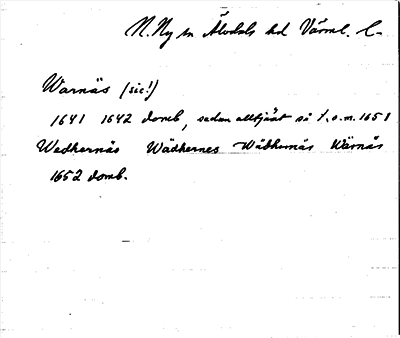 N. Ny sn Älvdals hd Värml. l.
Warnäs (sic!)
1641 1642 domb, sedan alltjämt så t.o.m. 1651
Wedhernäs Wädhernes Wädhernäs Wärnäs
1652 domb.